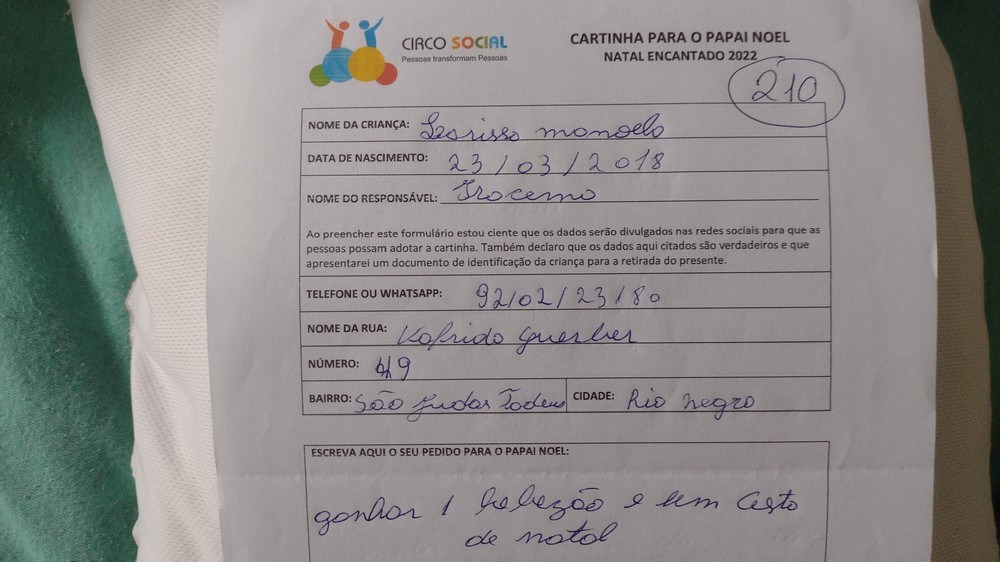 CIRCO SOCIAL
Pessoas transformam Pessoas
CARTINHA PARA O PAPAI NOEL
NATAL ENCANTADO 2022
210
NOME DA CRIANÇA: Larissa manoela
DATA DE NASCIMENTO: 23/03/2018
NOME DO RESPONSÁVEL: Iracema
Ao preencher este formulário estou ciente que os dados serão divulgados nas redes sociais para que as
pessoas possam adotar a cartinha. Também declaro que os dados aqui citados são verdadeiros e que
apresentarei um documento de identificação da criança para a retirada do presente.
TELEFONE OU WHATSAPP: 92/02/23/80
NOME DA RUA:
NÚMERO: 49
BAIRRO: São Judas Tadeu CIDADE: Rio negro
ESCREVA AQUI O SEU PEDIDO PARA O PAPAI NOEL:
ganhar 1 bebezão e um cesto
de natal